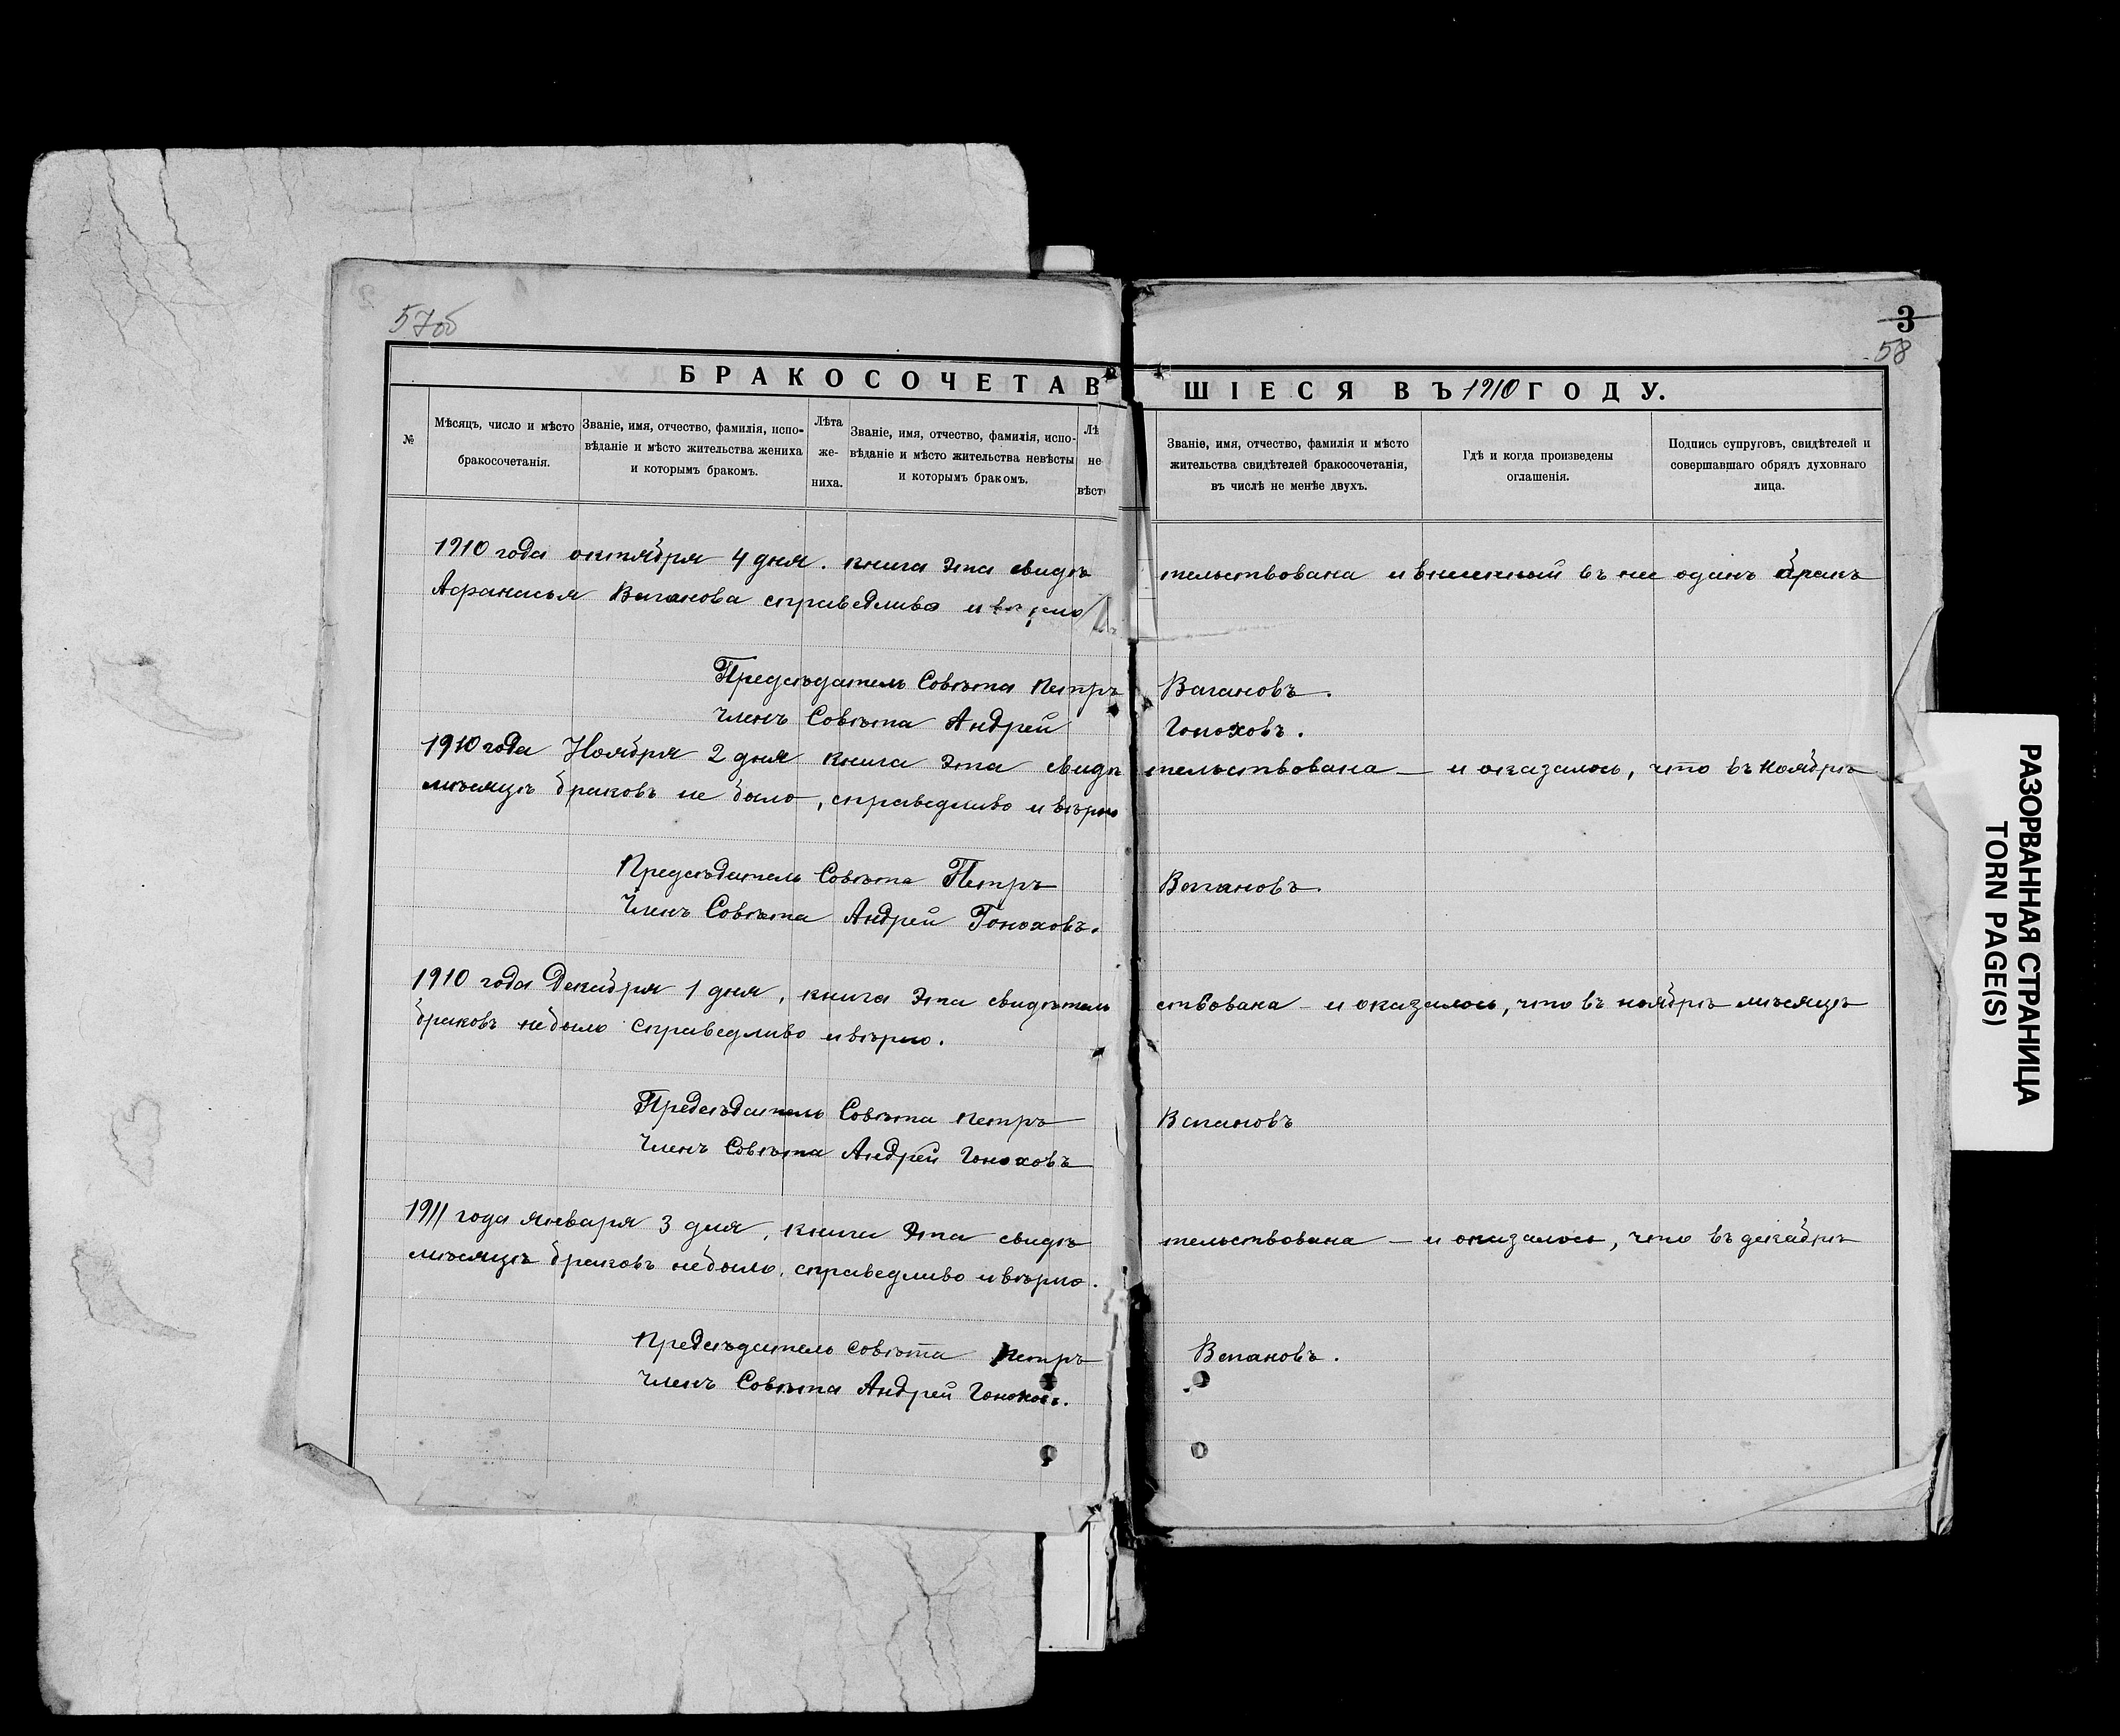 57об
3
58
БРАКОСОЧЕТАВШІЕСЯ ВЪ 1910 ГОДУ.
№
Мѣсяцъ, число и мѣсто
бракосочетанія.
Званіе, имя, отчество, фамилія, испо-
вѣданіе и мѣсто жительства жениха
и которымъ бракомъ.
Лѣта
же-
ниха.
Званіе, имя, отчество, фамилія, испо-
вѣданіе и мѣсто жительства невѣсты
и которымъ бракомъ.
Лѣ
не
вѣст
Званіе, имя, отчество, фамилія и мѣсто
жительства свидѣтелей бракосочетанія,
въ числѣ не менѣе двухъ.
Гдѣ и когда произведены
оглашенія.
Подпись супруговъ, свидѣтелей и
совершавшаго обрядъ духовнаго
лица.
1910 года октября 4 дня. книга эта свидѣтельствована и внесенный въ нее одинъ бракъ
Афанасья Ваганова справедливо и
Предсѣдатель Совѣта Петръ Вагановъ.
Членъ Совѣта Андрей Гоноховъ.
1910 года Ноября 2 дня книга эта свидѣтельствована — и оказалось, что въ ноябрѣ
мѣсяцѣ браковъ не было, справедливо и вѣрно
Предсѣдатель Совѣта Петръ Вагановъ.
Членъ Совѣта Андрей Гоноховъ.
1910 года Декабря 1 дня, книга эта свидѣтельствована – и оказалось, что въ ноябрѣ мѣсяцѣ
браковъ небыло справедливо и вѣрно.
Предсѣдатель Совѣта Петръ Вагановъ
Членъ Совѣта Андрей Гоноховъ
1911 года января 3 дня, книга эта свидѣтельствована — и оказалось, что въ декабрѣ
мѣсяцѣ браковъ небыло, справедливо и вѣрно.
Предсѣдатель совѣта Петръ Вагановъ.
Членъ Совѣта Андрей Гонохов.
РАЗОРВАННАЯ СТРАНИЦА
TORN PAGE(S)